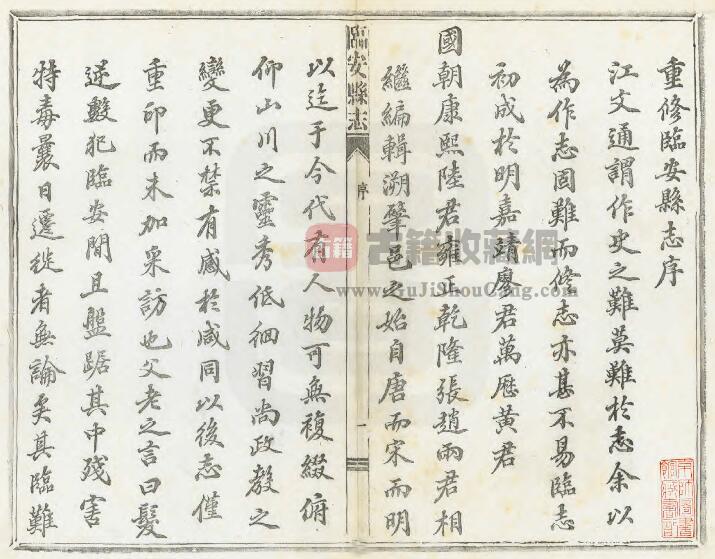 重修臨安縣志序
江文通謂作史之難莫難於志余以
為作志固難而修志亦甚不易臨志
初成於明嘉靖廖君萬歷黃君
國朝康熙陸君雍正乾隆張趙兩君相
繼編輯溯肇邑之始自唐而宋而明
臨安縣志
序
一
以迄于今代有人物可無複綴俯
仰山川之靈秀低徊習尚政教之
變更不禁有感於咸同以後志僅
重印而未加采訪也父老之言曰髮
逆數犯臨安間且盤踞其中殘害
特毒曩日遷徙者無論矣其臨難
古籍
古籍收藏網
www.GuJiShouCang.com